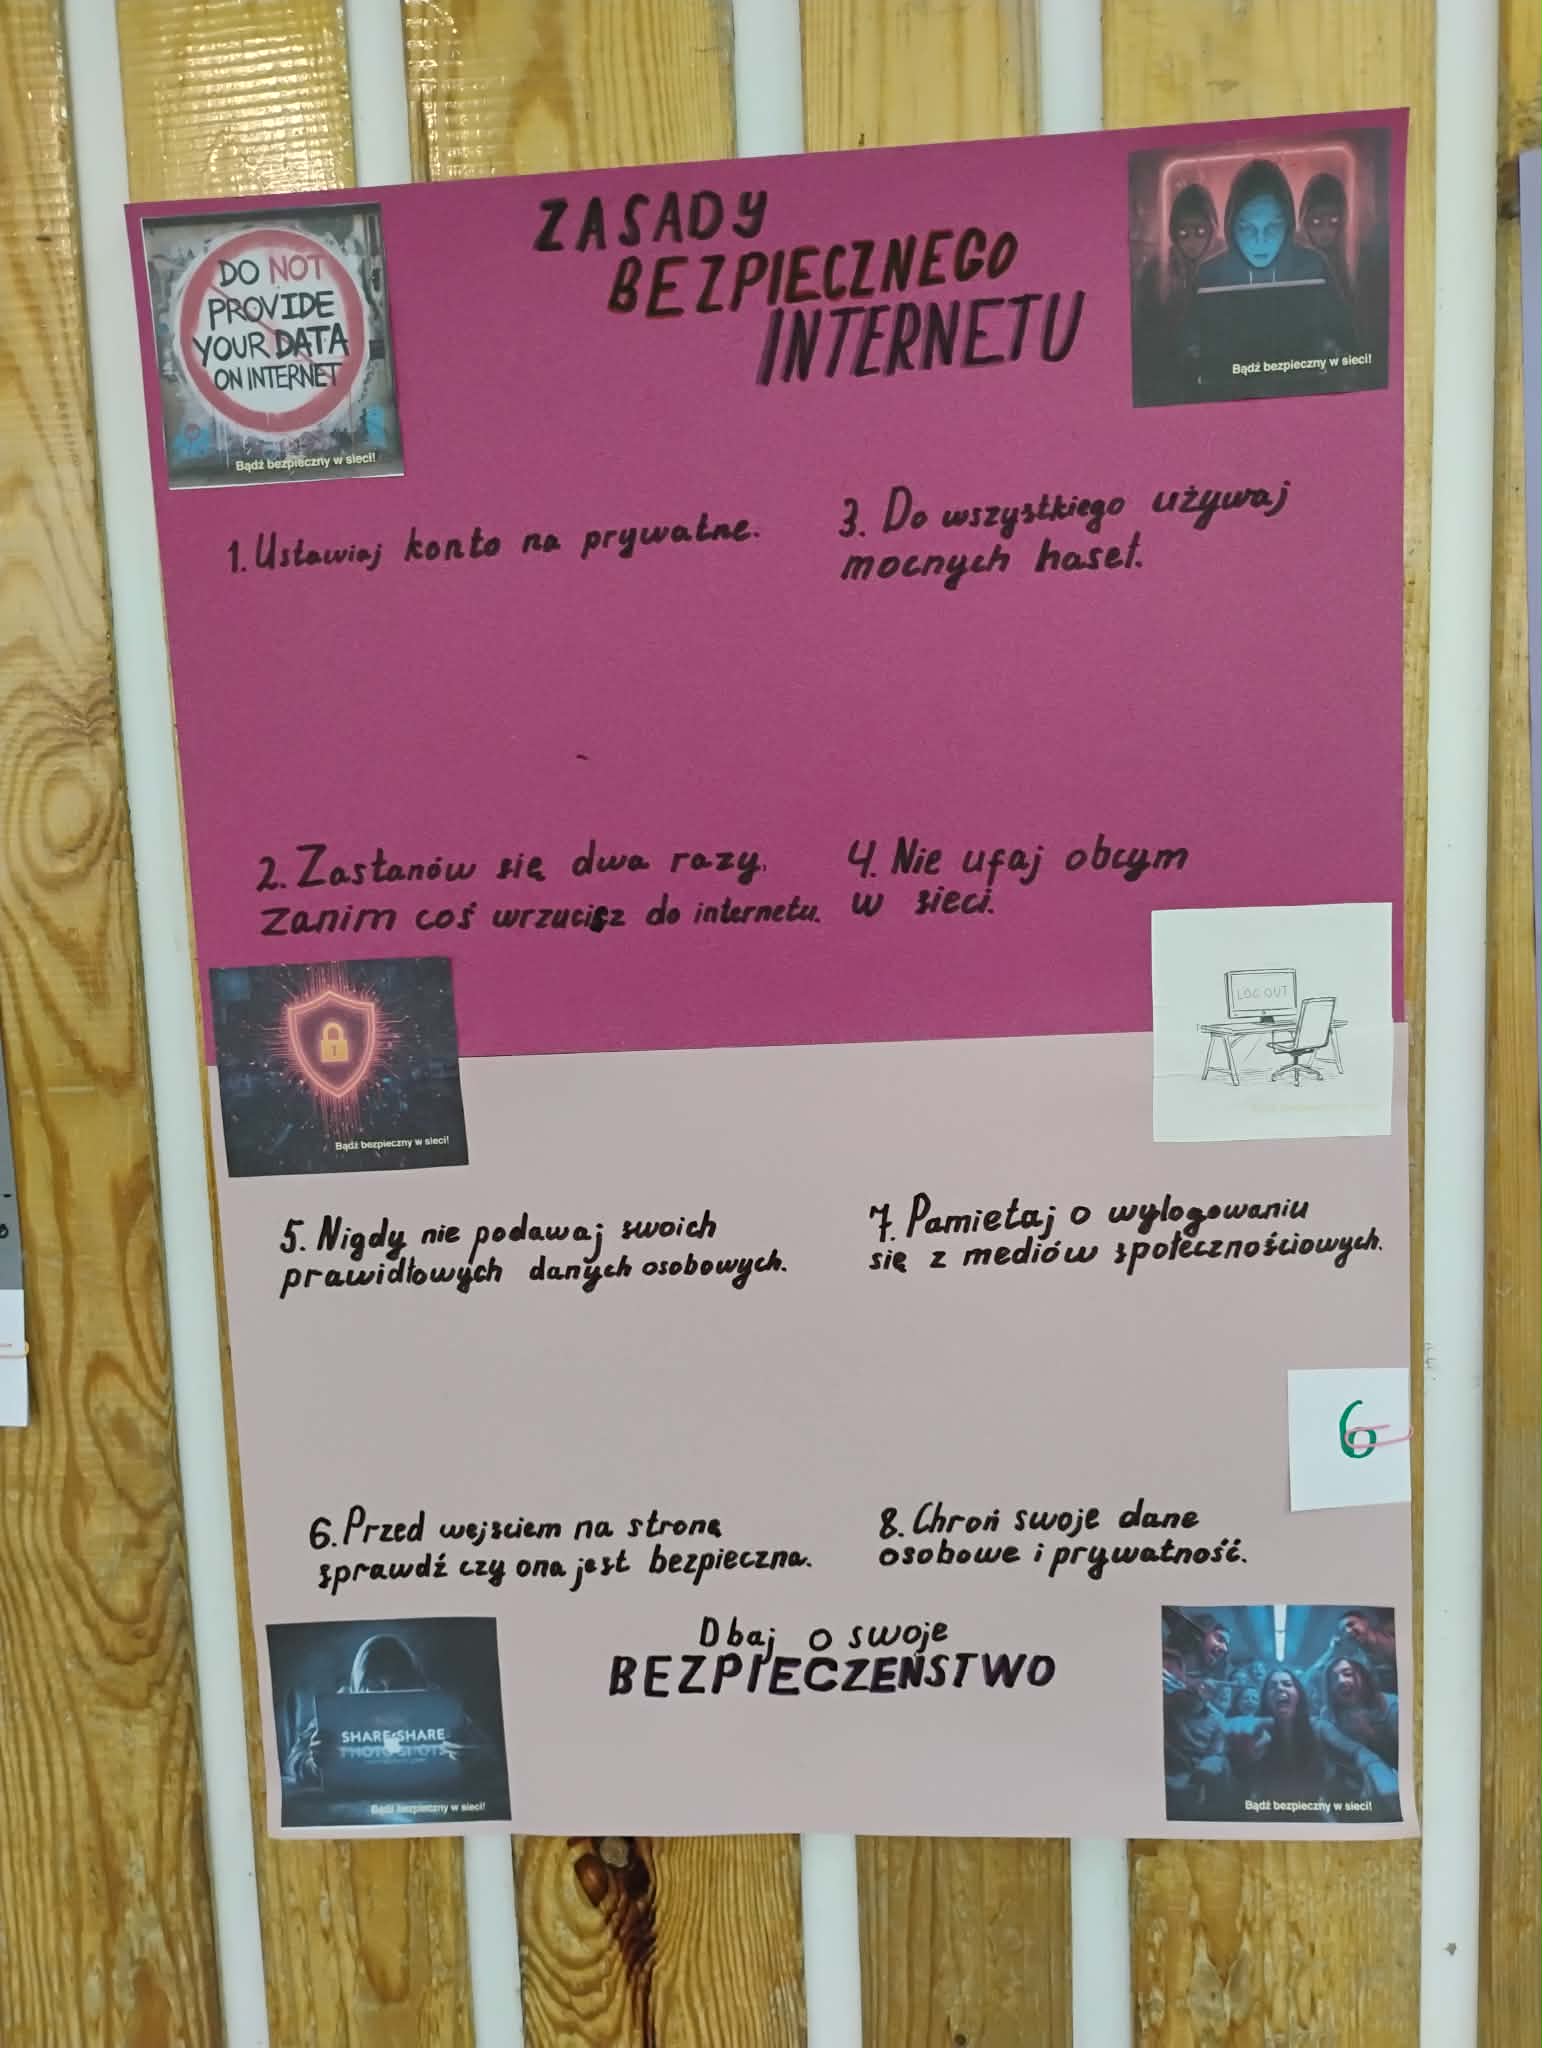 ZASADY
BEZPIECZNEGO
INTERNETU
DO NOT
PROVIDE
YOUR DATA
ON INTERNET
Bądź bezpieczny w sieci!
Bądź bezpieczny w sieci!
1. Ustawiaj konto na prywatne.
2. Zastanów się dwa razy,
zanim coś wrzucisz do internetu.
3. Do wszystkiego używaj
mocnych haseł.
4. Nie ufaj obcym
w sieci.
Bądź bezpieczny w sieci!
LOG OUT
5. Nigdy nie podawaj swoich
prawidłowych danych osobowych.
6. Przed wejściem na stronę
sprawdź czy ona jest bezpieczna.
7. Pamiętaj o wylogowaniu
się z mediów społecznościowych.
8. Chroń swoje dane
osobowe i prywatność.
6
Dbaj o swoje
BEZPIECZEŃSTWO
SHARE SHARE
Bądź bezpieczny w sieci!
Bądź bezpieczny w sieci!